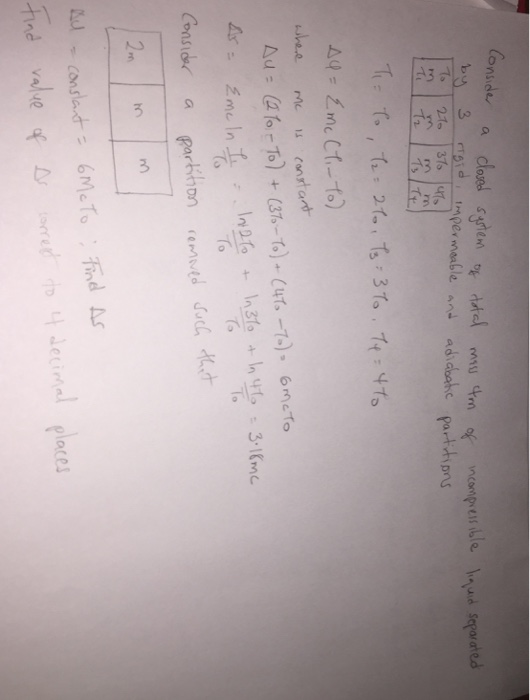 Conside a closed system of total mass 4m of incompressible liquid separated
by 3 rigid, impermeable and adiabatic partitions
T0 2T0 3T0 4T0
m m m m
T1 T2 T3 T4
T1 = T0, T2 = 2T0, T3 = 3T0, T4 = 4T0
ΔU = Σ mc (Ti - T0)
where mc is constant
ΔU = (2T0 - T0) + (3T0 - T0) + (4T0 - T0) = 6mcT0
Δs = Σ mc ln Ti/T0 = ln 2T0/T0 + ln 3T0/T0 + ln 4T0/T0 = 3.18mc
Consider a partition removed such that
2m m m
ΔU = constant = 6McT0 : Find Δs
Find value of Δs correct to 4 decimal places